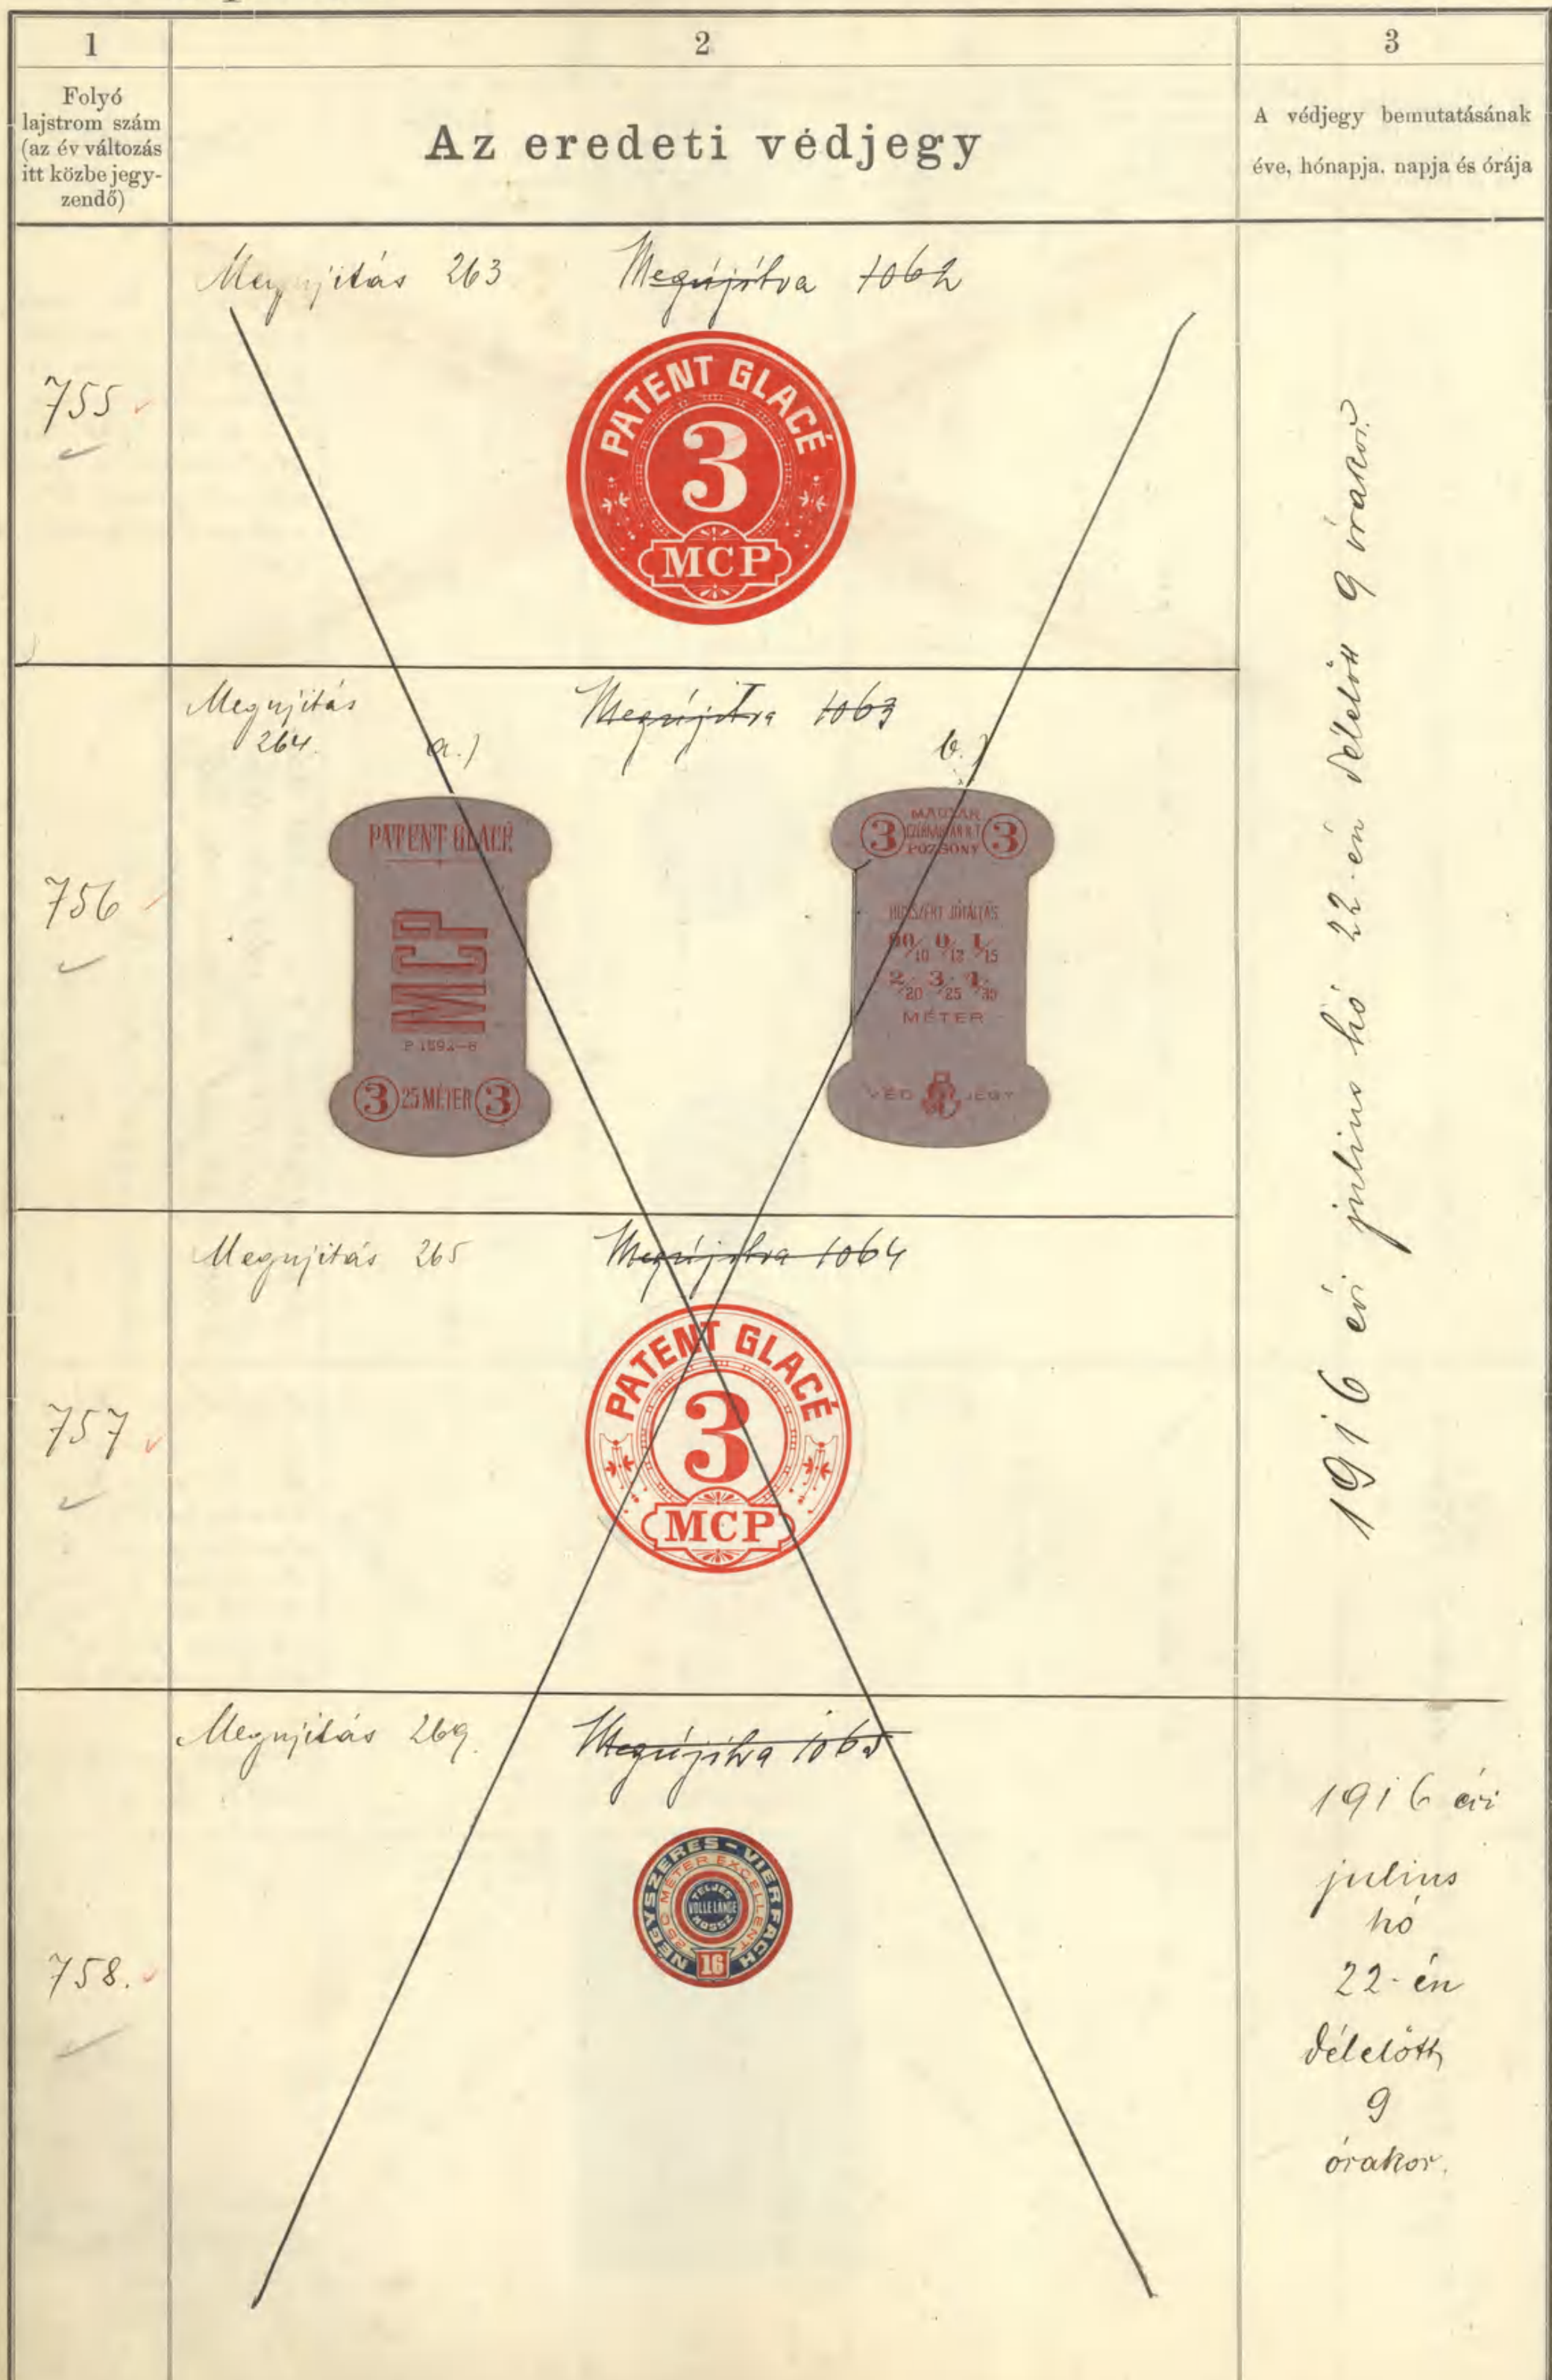 1
2
3
Folyó
lajstrom szám
(az év változás
itt közbe jegy-
zendő)
Az eredeti védjegy
A védjegy bemutatásának
éve, hónapja, napja és órája
755
Megujitás 263
Megújítva 1062
PATENT GLACÉ
3
MCP
1916 évi julius hó 22-én délelőtt 9 órakor.
756
Megujitás
264.
Megújítva 1063
a.)
b.)
PATENT GLACÉ
MCP
3 25 MÉTER 3
MAGYAR
3 CZÉRNAGYÁR R.T. 3
POZSONY
HOSSZÉRT JÓTÁLLÁS
00/10 0/12 1/15
2/20 3/25 4/35
MÉTER
VÉD JEGY
757
Megujitás 265
Megújítva 1064
PATENT GLACÉ
3
MCP
758.
Megujitás 269.
Megújítva 1065
NÉGYSZERES - VIERFACH
MÉTER EXCELLENT
TELJES
VOLLE LÄNGE
HOSSZ
16
1916 évi
julius
hó
22-én
délelőtt
9
órakor.